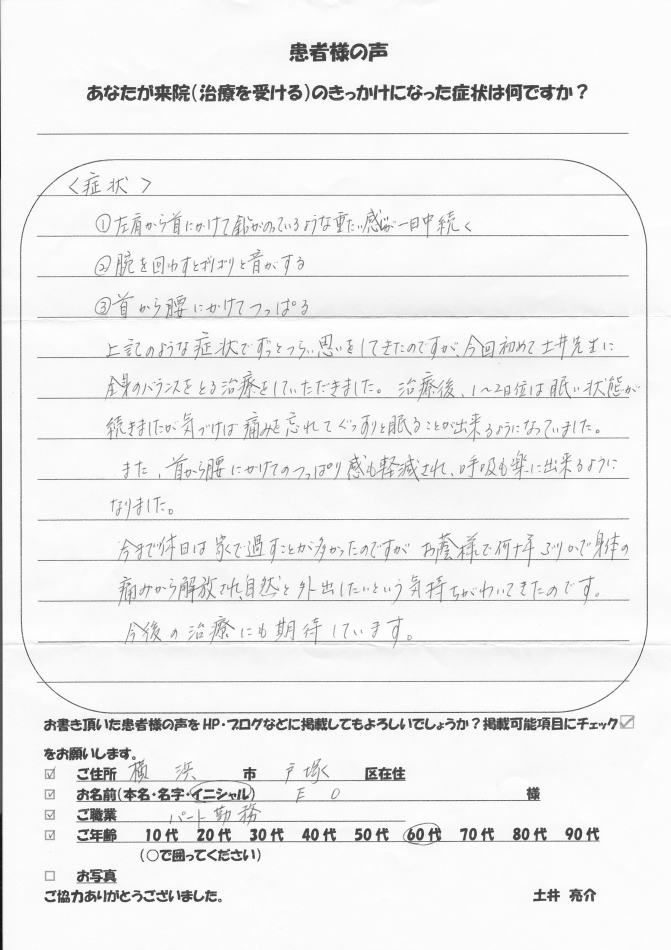 患者様の声
あなたが来院(治療を受ける)のきっかけになった症状は何ですか?
〈症状〉
①左肩から首にかけて鉛がのっているような重たい感じが一日中続く
②腕を回わすとボリボリと音がする
③首から腰にかけてつっぱる
上記のような症状でずっとつらい思いをしてきたのですが、今回初めて土井先生に
全身のバランスをとる治療をしていただきました。治療後、1〜2日位は眠い状態が
続きましたが気づけば痛みを忘れてぐっすりと眠ることが出来るようになっていました。
また、首から腰にかけてのつっぱり感も軽減され、呼吸も楽に出来るように
なりました。
今まで休日は家で過すことが多かったのですが お蔭様で何十年ぶりかで身体の
痛みから解放され、自然と外出したいという気持ちがわいてきたのです。
今後の治療にも期待しています。
お書き頂いた患者様の声をHP・ブログなどに掲載してもよろしいでしょうか?掲載可能項目にチェック☑
をお願いします。
☑ ご住所 横浜 市 戸塚 区在住
☑ お名前(本名・名字・イニシャル) E O 様
☑ ご職業 パート勤務
☑ ご年齢 10代 20代 30代 40代 50代 60代 70代 80代 90代
(○で囲ってください)
□ お写真
ご協力ありがとうございました。 土井 亮介